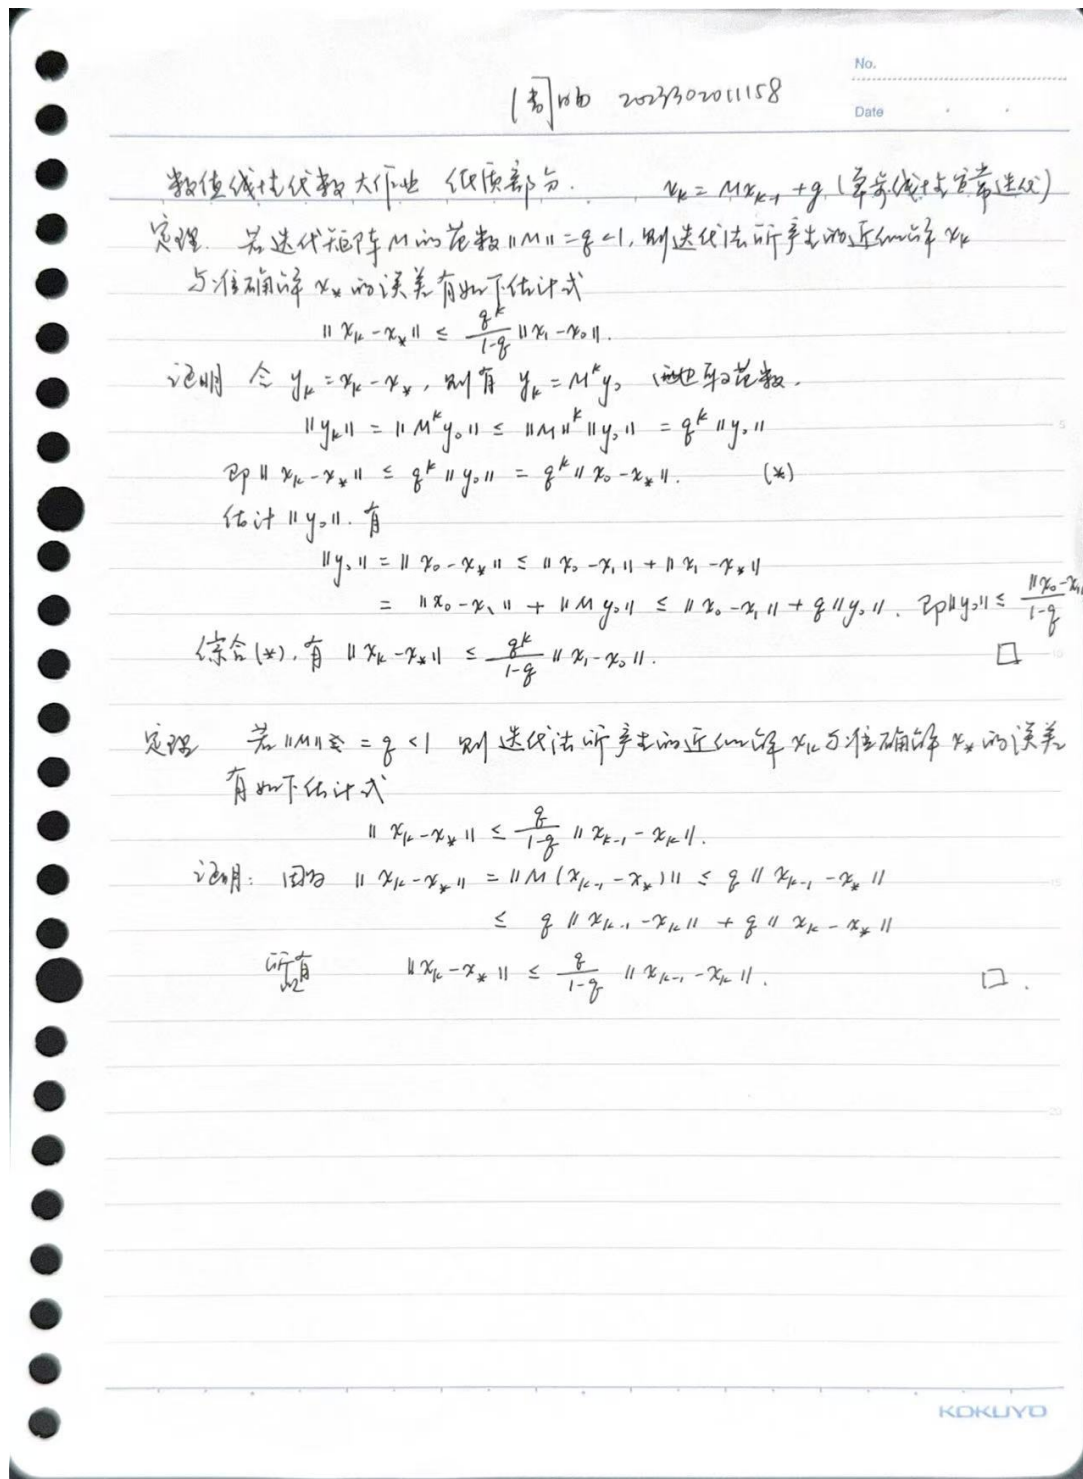 No.
周 2023302011158
Date
数值线性代数大作业 纸质部分. x_k = Mx_{k-1} + g (单步线性定常迭代)
定理. 若迭代矩阵 M 的范数 ‖M‖ = q < 1, 则迭代法所产生的近似解 x_k
与准确解 x_* 的误差有如下估计式
‖x_k - x_*‖ ≤ \frac{q^k}{1-q} ‖x_1 - x_0‖.
证明 令 y_k = x_k - x_*, 则有 y_k = M^k y_0 两边取范数.
‖y_k‖ = ‖M^k y_0‖ ≤ ‖M‖^k ‖y_0‖ = q^k ‖y_0‖
即 ‖x_k - x_*‖ ≤ q^k ‖y_0‖ = q^k ‖x_0 - x_*‖. (*)
估计 ‖y_0‖. 有
‖y_0‖ = ‖x_0 - x_*‖ ≤ ‖x_0 - x_1‖ + ‖x_1 - x_*‖
= ‖x_0 - x_1‖ + ‖M y_0‖ ≤ ‖x_0 - x_1‖ + q‖y_0‖. 即 ‖y_0‖ ≤ \frac{‖x_0 - x_1‖}{1-q}
综合(*), 有 ‖x_k - x_*‖ ≤ \frac{q^k}{1-q} ‖x_1 - x_0‖. □
定理 若 ‖M‖ = q < 1 则迭代法所产生的近似解 x_k 与准确解 x_* 的误差
有如下估计式
‖x_k - x_*‖ ≤ \frac{q}{1-q} ‖x_{k-1} - x_k‖.
证明: 因为 ‖x_k - x_*‖ = ‖M(x_{k-1} - x_*)‖ ≤ q ‖x_{k-1} - x_*‖
≤ q ‖x_{k-1} - x_k‖ + q ‖x_k - x_*‖
所以有 ‖x_k - x_*‖ ≤ \frac{q}{1-q} ‖x_{k-1} - x_k‖. □.
KOKUYO